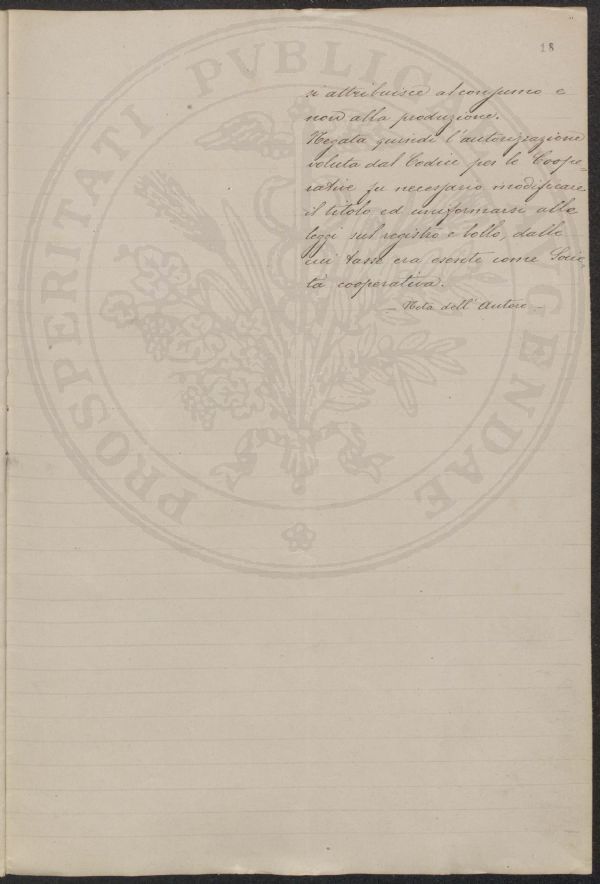 18
si attribuisce al consumo e
non alla produzione.
Negata quindi l'autorizzazione
voluta dal Codice per le Coope=
rative fu necessario modificare
il titolo ed uniformarsi alle
leggi sul registro e bollo, dalle
cui tasse era esente come Socie=
tà cooperativa.
— Nota dell'Autore —
PROSPERITATI PVBLICAE AVGENDAE